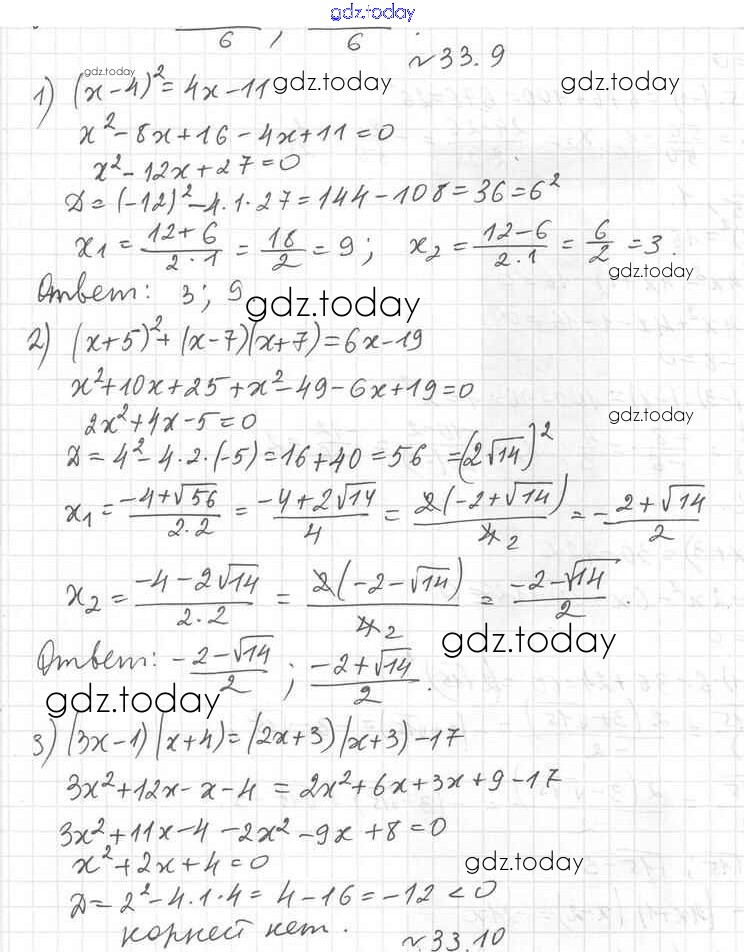 gdz.today
6 ; 6 .
№33.9
1) (x-4)² = 4x-11
gdz.today gdz.today gdz.today
x²-8x+16-4x+11=0
x²-12x+27=0
D=(-12)²-4·1·27=144-108=36=6²
x₁ = (12+6)/(2·1) = 18/2 = 9; x₂ = (12-6)/(2·1) = 6/2 = 3.
gdz.today
Ответ: 3; 9
gdz.today
2) (x+5)²+(x-7)(x+7)=6x-19
x²+10x+25+x²-49-6x+19=0
2x²+4x-5=0
gdz.today
D=4²-4·2·(-5)=16+40=56 =(2√14)²
x₁ = (-4+√56)/(2·2) = (-4+2√14)/4 = 2(-2+√14)/4 2 = -(2+√14)/2
x₂ = (-4-2√14)/(2·2) = 2(-2-√14)/4 2 = (-2-√14)/2 .
gdz.today
Ответ: -(2-√14)/2 ; (-2+√14)/2 .
gdz.today
3) (3x-1)(x+4)=(2x+3)(x+3)-17
3x²+12x-x-4 = 2x²+6x+3x+9-17
3x²+11x-4-2x²-9x+8=0
x²+2x+4=0
gdz.today
D=2²-4·1·4=4-16=-12<0
корней нет.
№33.10